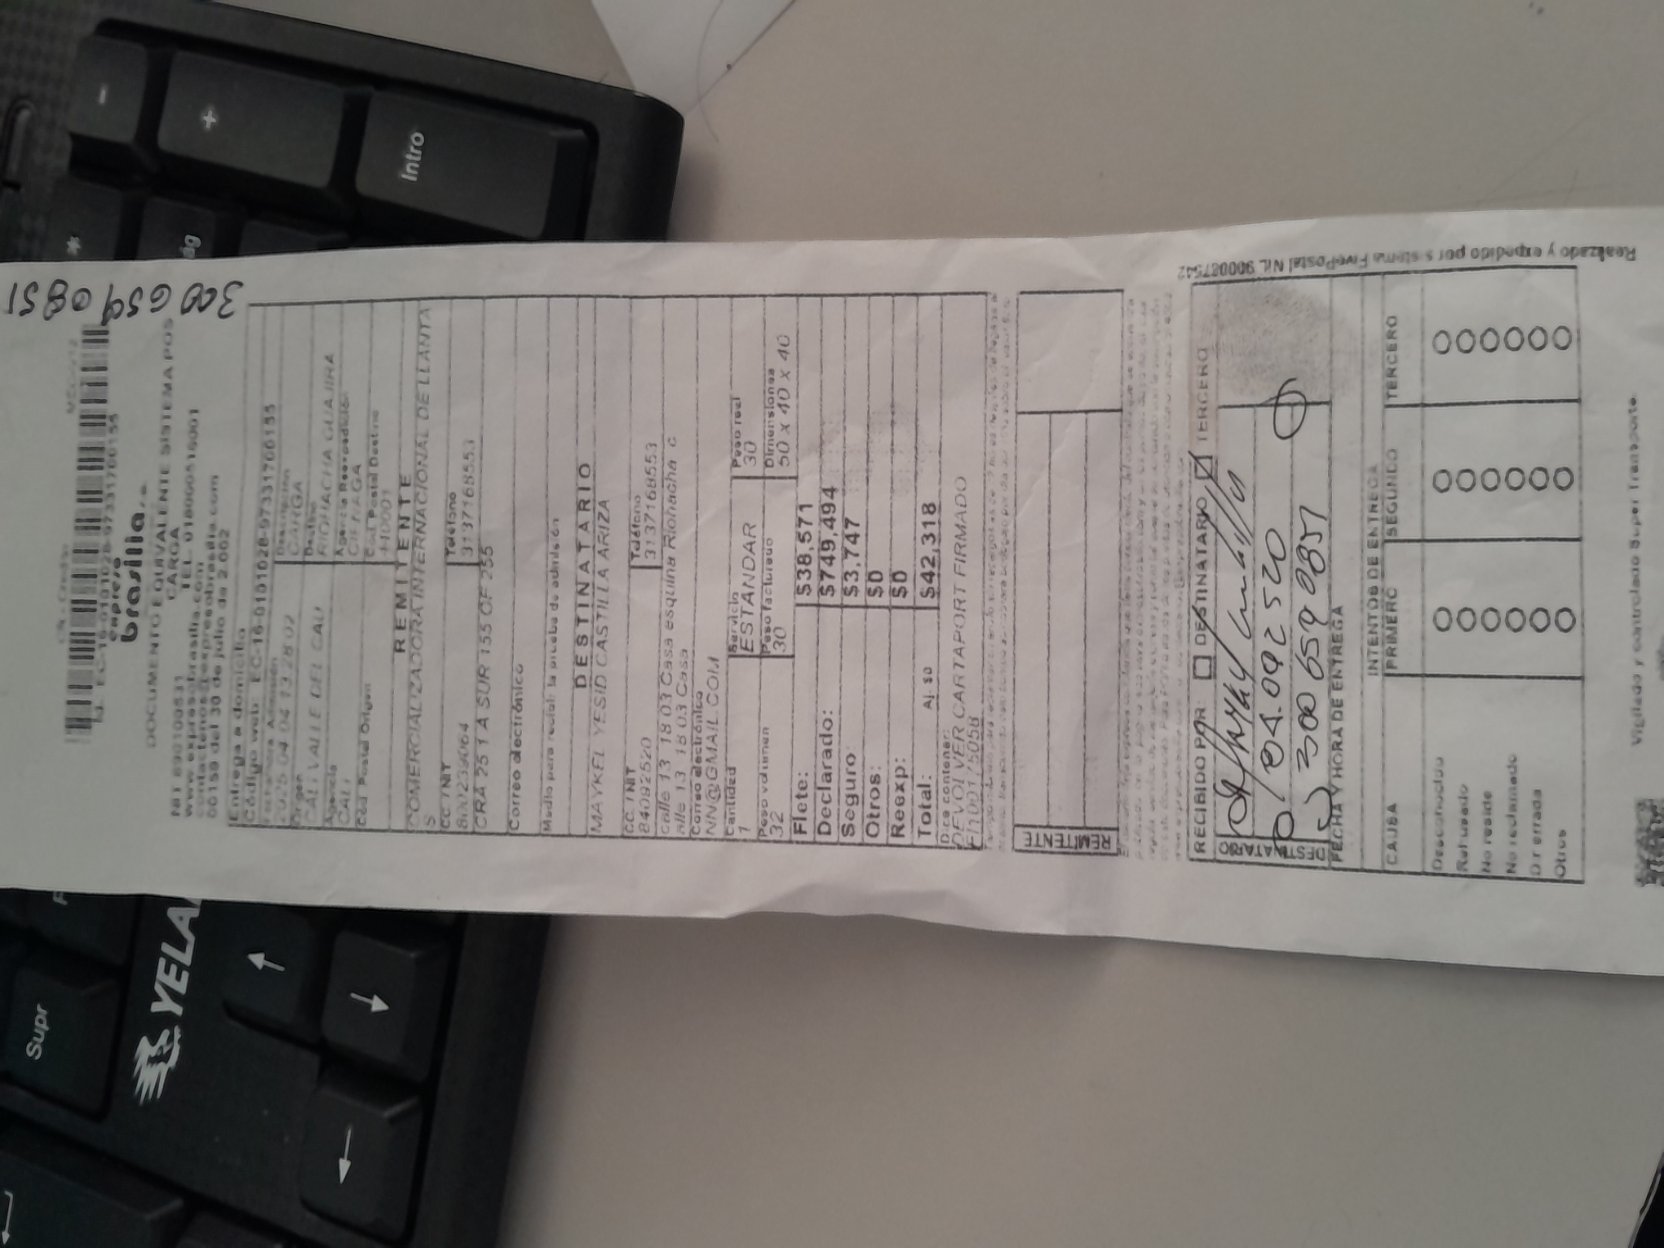 300 659 0851
expreso
brasilia
DOCUMENTO EQUIVALENTE SISTEMA POS
CARGA
TEL. 018000516001
NIT 890100531
00159 del 30 de julio de 2.002
Entrega a domicilio
CARGA
Destino
CALI VALLE DEL CAU
RIOHACHA GUAJIRA
Agencia
CALI
CIENAGA
Cod Postal Origen
Cod Postal Destino
REMITENTE
COMERCIALIZADORA INTERNACIONAL DE LLANTA
S
CC / NIT
Teléfono
3137168553
CRA 25 1 A SUR 155 OF 255
Correo electrónico
Medio para recibir la prueba de admisión
DESTINATARIO
MAYKEL YESID CASTILLA ARIZA
CC / NIT
84092520
Teléfono
3137168553
Calle 13 18 03 Casa esquina Riohacha C
alle 13 18 03 Casa
Correo electrónico
NN@GMAIL.COM
Cantidad
1
Servicio
ESTANDAR
Peso real
30
Peso volumen
32
Peso facturado
30
Dimensiones
50 X 40 X 40
Flete: $38,571
Declarado: $749,494
Seguro $3,747
Otros: $0
Reexp: $0
Total: $42,318
Dice contener:
DEVOLVER CARTAPORT FIRMADO
REMITENTE
RECIBIDO POR DESTINATARIO TERCERO
DESTINATARIO
84.092520
300 659 0851
FECHA Y HORA DE ENTREGA
INTENTOS DE ENTREGA
CAUSA PRIMERO SEGUNDO TERCERO
Desconocido
Rehusado
No reside
No reclamado
Dir errada
Otros
Realizado y expedido por sistema FivePostal Nit. 900087542
Vigilado y controlado Super Transporte
-
+
Intro
*
Supr
YELA